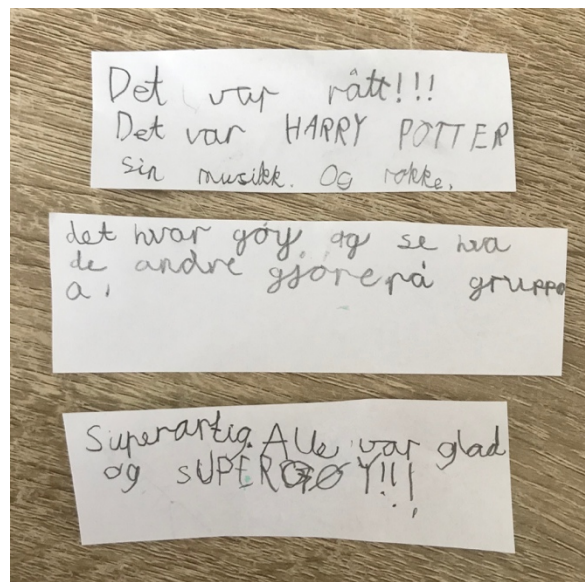 Det var rått!!!
Det var HARRY POTTER
sin musikk. Og rokke.
det hvar gøy og se hva
de andre gjøre på gruppo
a.
Superartig. Alle var glad
og SUPERGØY!!!